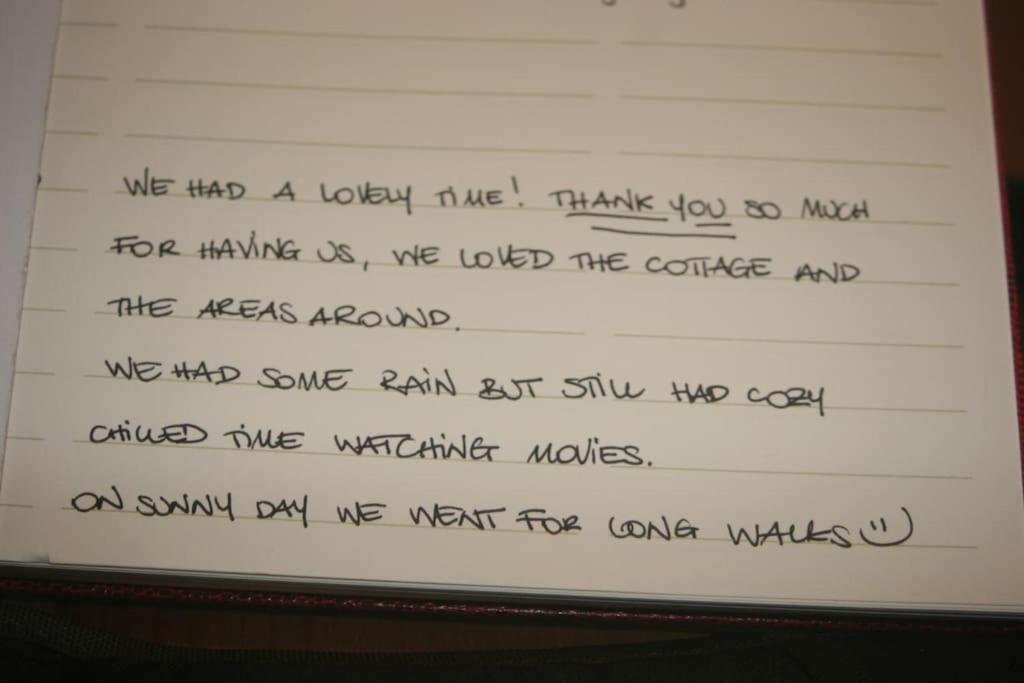 WE HAD A LOVELY TIME! THANK YOU SO MUCH
FOR HAVING US, WE LOVED THE COTTAGE AND
THE AREAS AROUND.
WE HAD SOME RAIN BUT STILL HAD COZY
CHILLED TIME WATCHING MOVIES.
ON SUNNY DAY WE WENT FOR LONG WALKS :)